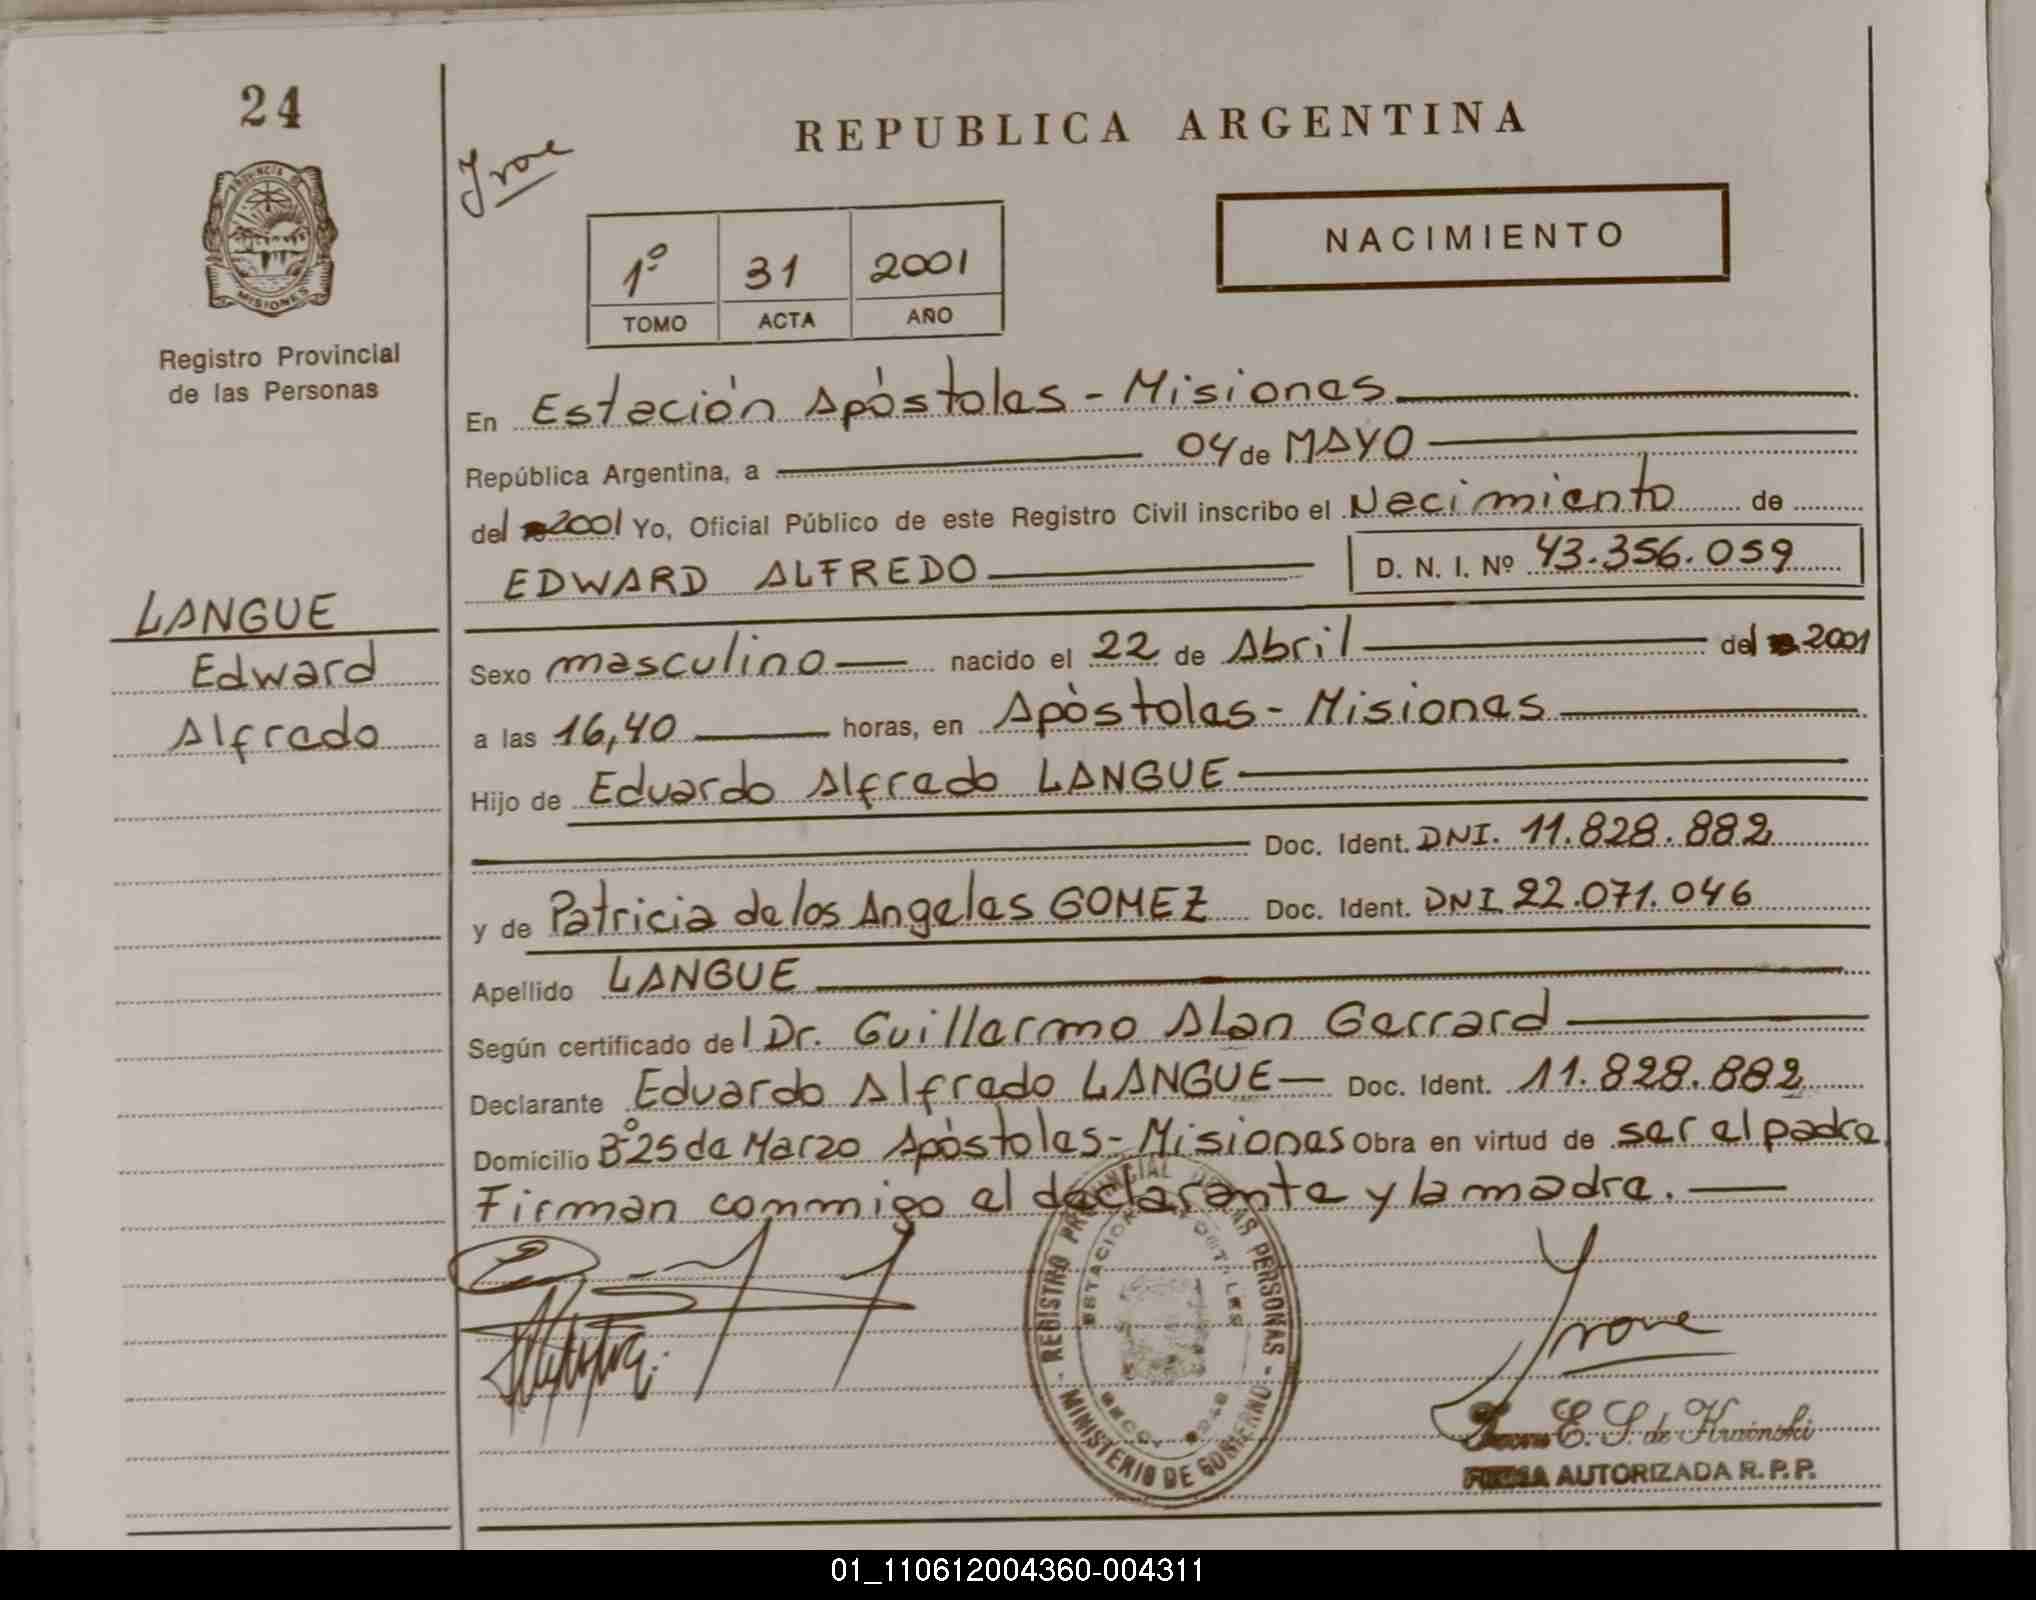 24
REPUBLICA ARGENTINA
Irone
PROVINCIA DE
MISIONES
NACIMIENTO
1º 31 2001
TOMO ACTA AÑO
Registro Provincial
de las Personas
En Estación Apóstoles - Misiones
República Argentina, a 04 de MAYO
del 2001 Yo, Oficial Público de este Registro Civil inscribo el Nacimiento de
EDWARD ALFREDO D. N. I. Nº 43.356.059
LANGUE
Edward
Alfredo
Sexo masculino nacido el 22 de Abril del 2001
a las 16,40 horas, en Apòstoles - Misiones
Hijo de Eduardo Alfredo LANGUE
Doc. Ident. DNI. 11.828.882
y de Patricia de los Angeles GOMEZ Doc. Ident. DNI 22.071.046
Apellido LANGUE
Según certificado del Dr. Guillermo Alan Gerrard
Declarante Eduardo Alfredo LANGUE Doc. Ident. 11.828.882
Domicilio Bº 25 de Marzo Apòstoles - Misiones Obra en virtud de ser el padre.
Firman conmigo el declarante y la madre.
REGISTRO PROVINCIAL DE LAS PERSONAS
MINISTERIO DE GOBIERNO
Irone
E. S. de
FIRMA AUTORIZADA R.P.P.
01_110612004360-004311